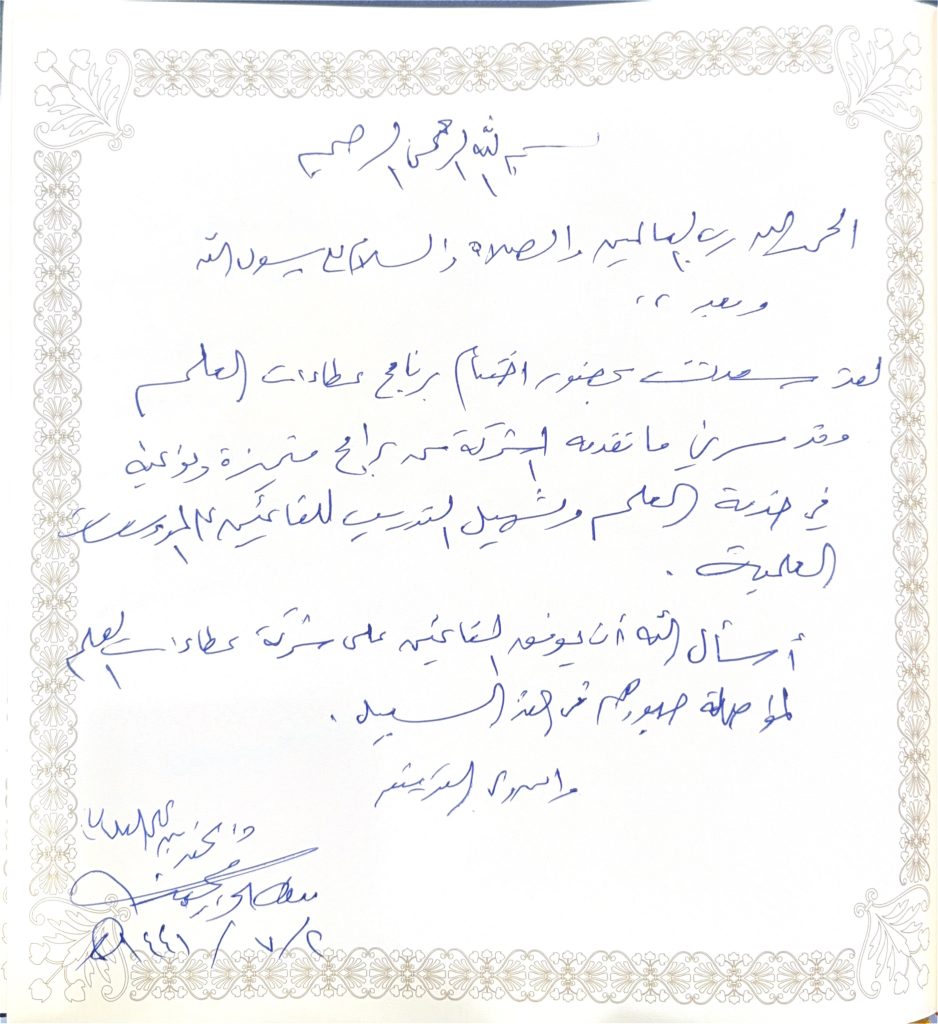 بسم الله الرحمن الرحيم
الحمد لله رب العالمين والصلاة والسلام على رسول الله
وبعد ،،
لقد سعدت بحضور اختتام برنامج عطاءات العلم
وقد سرني ما تقدمه الشركة من برامج متميزة ونوعية
في خدمة العلم وتسهيل التدريب للقائمين على المؤسسات
العلمية .
أسأل الله أن يوفق القائمين على شركة عطاءات العلم
لمواصلة جهودهم في هذا السبيل .
والله ولي التوفيق
٢ / ٧ / ١٤٤١ هـ